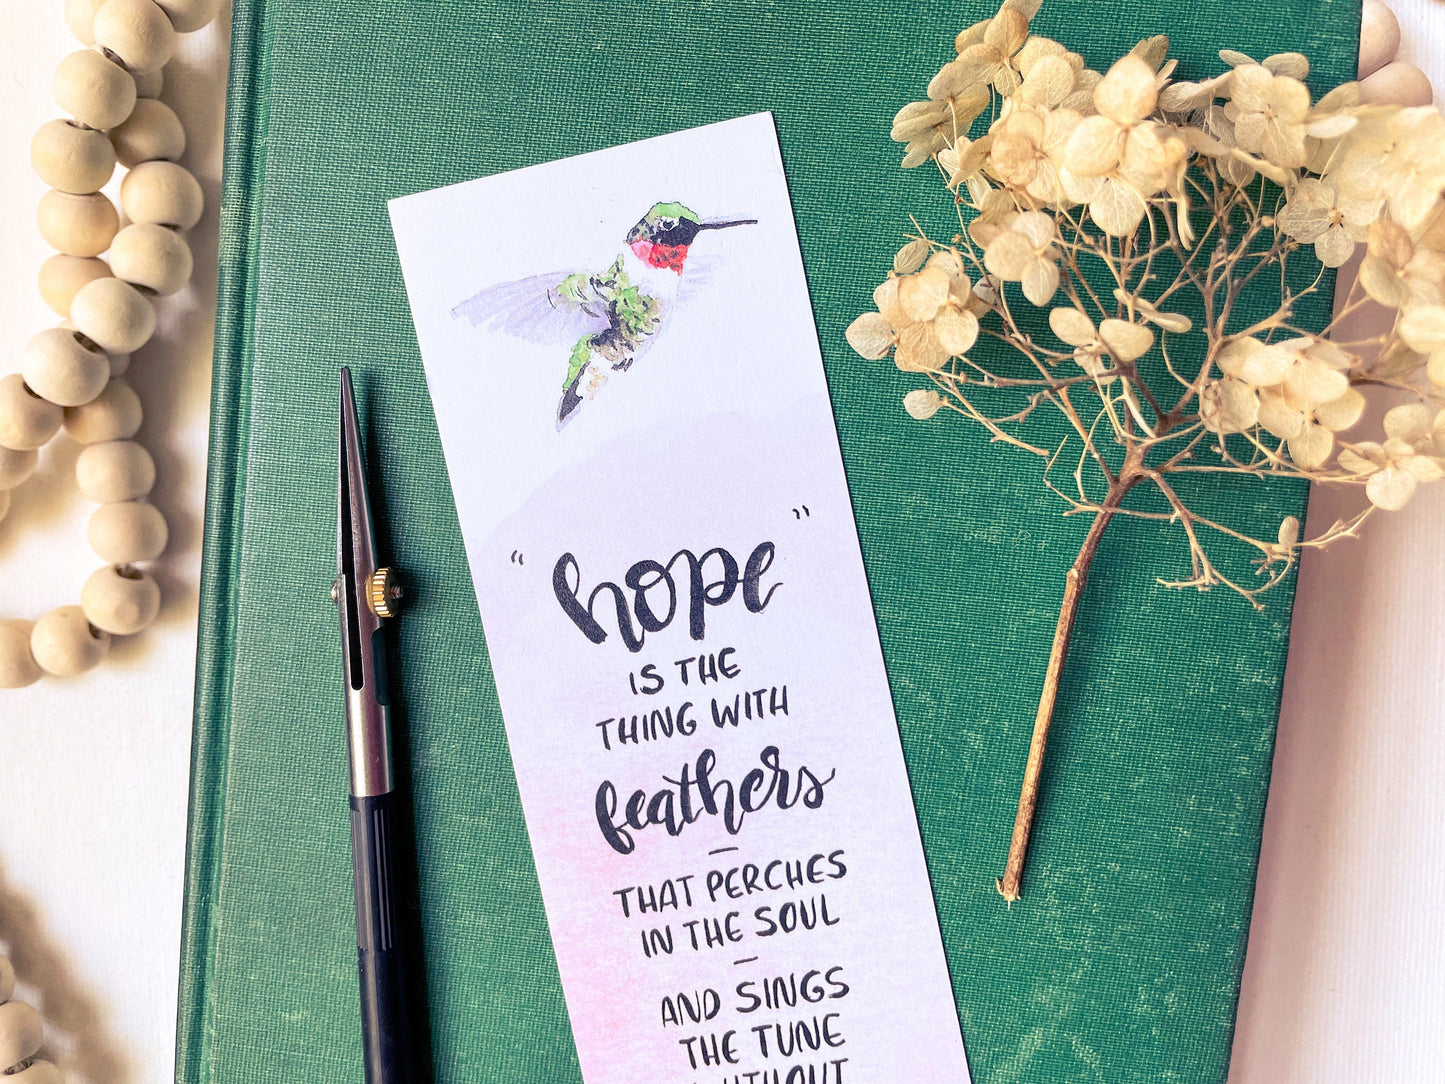 “hope”
IS THE
THING WITH
feathers
—
THAT PERCHES
IN THE SOUL
—
AND SINGS
THE TUNE
WITHOUT